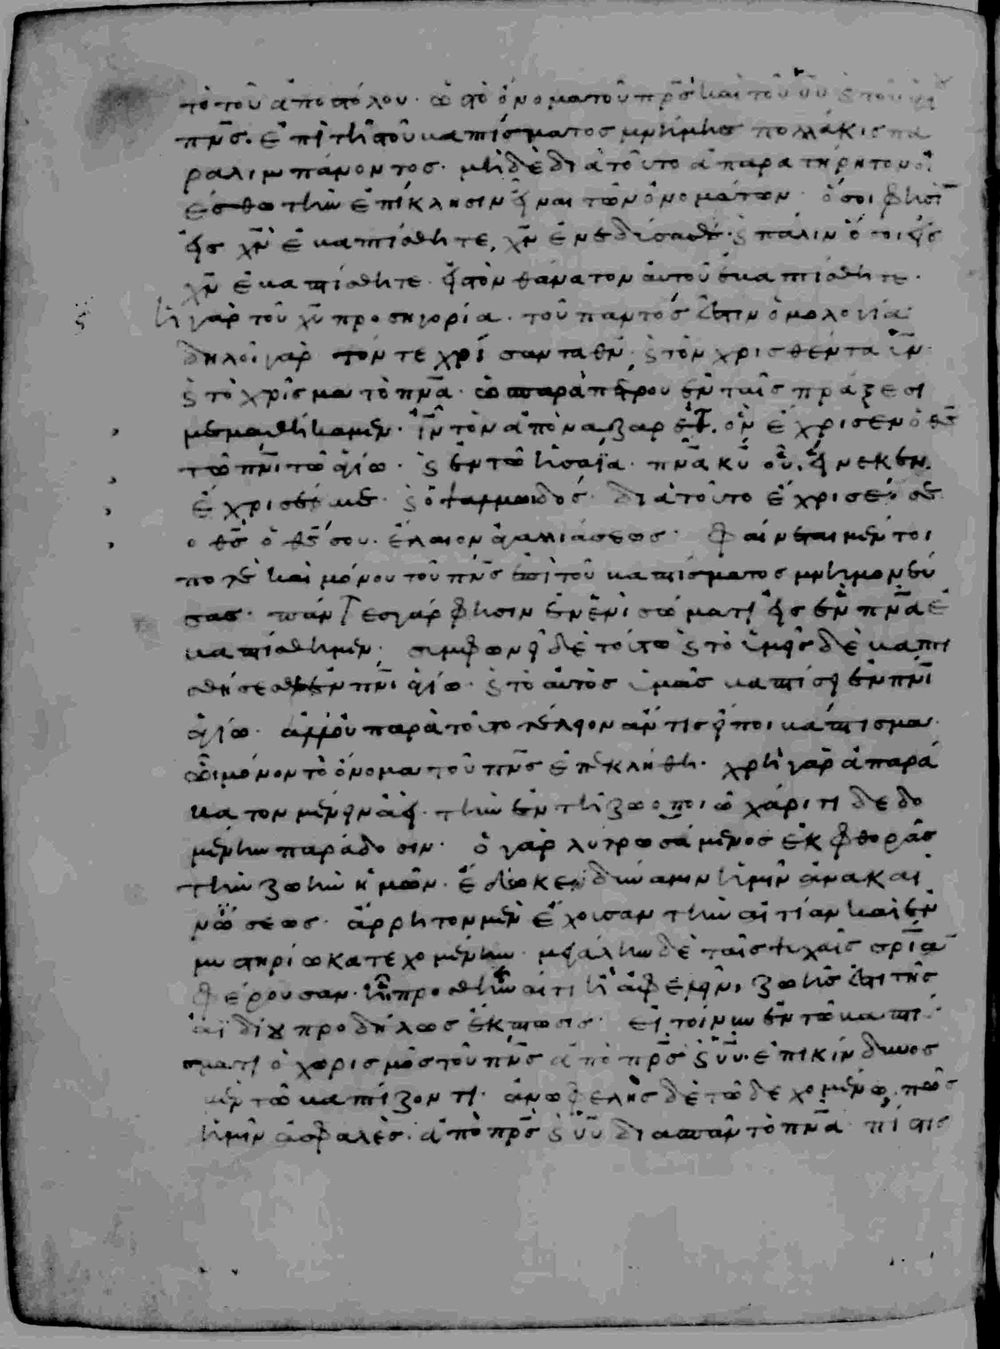 τὸ τοῦ ἀποστόλου· τὸ ὄνομα τοῦ πρ̅ς καὶ τοῦ υ̅υ ϛ τοῦ ἁγί
πν̅ς· ἐπὶ τῆς τοῦ βαπτίσματος μνήμης πολλάκις πα
ραλιμπάνοντος· μὴ δὲ διὰ τοῦτο ἀπαρατήρητον οἱ
έσθω τὴν ἐπίκλησιν εἶναι τῶν ὀνομάτων· ὅσοι φησὶ
εἰς χ̅ν ἐβαπτίσθητε, χ̅ν ἐνεδύσασθε· ϛ πάλιν ὅσοι εἰς
χ̅ν ἐβαπτίσθητε· εἰς τὸν θάνατον αὐτοῦ ἐβαπτίσθητε·
ἡ γὰρ τοῦ χ̅υ προσηγορία· τοῦ παντός ἐστιν ὁμολογία·
δηλοῖ γὰρ τόν τε χρίσαντα θ̅ν· ϛ τὸν χρισθέντα υ̅ν·
ϛ τὸ χρῖσμα τὸ πν̅α· ὡς παρὰ πέτρου ἐν ταῖς πράξεσι
μεμαθήκαμεν· ι̅ν τὸν ἀπὸ ναζαρέτ· ὃν ἔχρισεν ὁ θ̅ς
τῷ πν̅ι τῷ ἁγίω· ϛ ἐν τῶ ἡσαΐα· πν̅α κ̅υ οὗ εἵνεκεν
ἔχρισέ με· ϛ ὁ ψαλμωιδός· διὰ τοῦτο ἔχρισέ σε
ὁ θ̅ς ὁ θ̅ς σου· ἔλαιον ἀγαλλιάσεως· φαίνεται μέντοι
ποτὲ καὶ μόνου τοῦ πν̅ς ἐπὶ τοῦ βαπτίσματος μνημονεύ
σας· πάντες γάρ φησιν ἐν ἑνὶ σώματι εἰς ἓν πν̅α ἐ
βαπτίσθημεν· συμφωνεῖ δὲ τούτω ϛ τὸ ὑμεῖς δὲ βαπτι
σθήσεσθε ἐν πν̅ι ἁγίω· ϛ τὸ αὐτὸς ὑμᾶς βαπτίσει ἐν πν̅ι
ἁγίω· ἀλλ' οὐ παρὰ τοῦτο τέλειον ἄν τις εἴποι βάπτισμα·
ὧι μόνον τὸ ὄνομα τοῦ πν̅ς ἐπεκλήθη· χρὴ γὰρ ἀπαρά
βατον μένειν ἀεὶ· τὴν ἐν τῆ ζωοποιῶ χάριτι δεδο
μένην παράδοσιν· ὁ γὰρ λυτρωσάμενος ἐκ φθορᾶς
τὴν ζωὴν ἡμῶν· ἔδωκεν δύναμιν ἡμῖν ἀνακαι
νώσεως· ἄρρητον μὲν ἔχουσαν τὴν αἰτίαν καὶ ἐν
μυστηρίω κατεχομένην· μεγάλην δὲ ταῖς ψυχαῖς σρ̅ίαν
φέρουσαν· ὥστε προσθεῖναί τι ἢ ἀφελεῖν, ζωῆς ἐστι τῆς
ἀϊδίου προδήλως ἔκπτωσις· εἰ τοίνυν ἐν τῶ βαπτί
σματι ὁ χωρισμὸς τοῦ πν̅ς ἀπὸ πρ̅ς ϛ υ̅υ· ἐπικίνδυνος
μὲν τῶ βαπτίζοντι· ἀνωφελὴς δὲ τῶ δεχομένω, πῶς
ἡμῖν ἀσφαλές· ἀπὸ πρ̅ς ϛ υ̅υ διασπᾶν τὸ πν̅α· πίστις